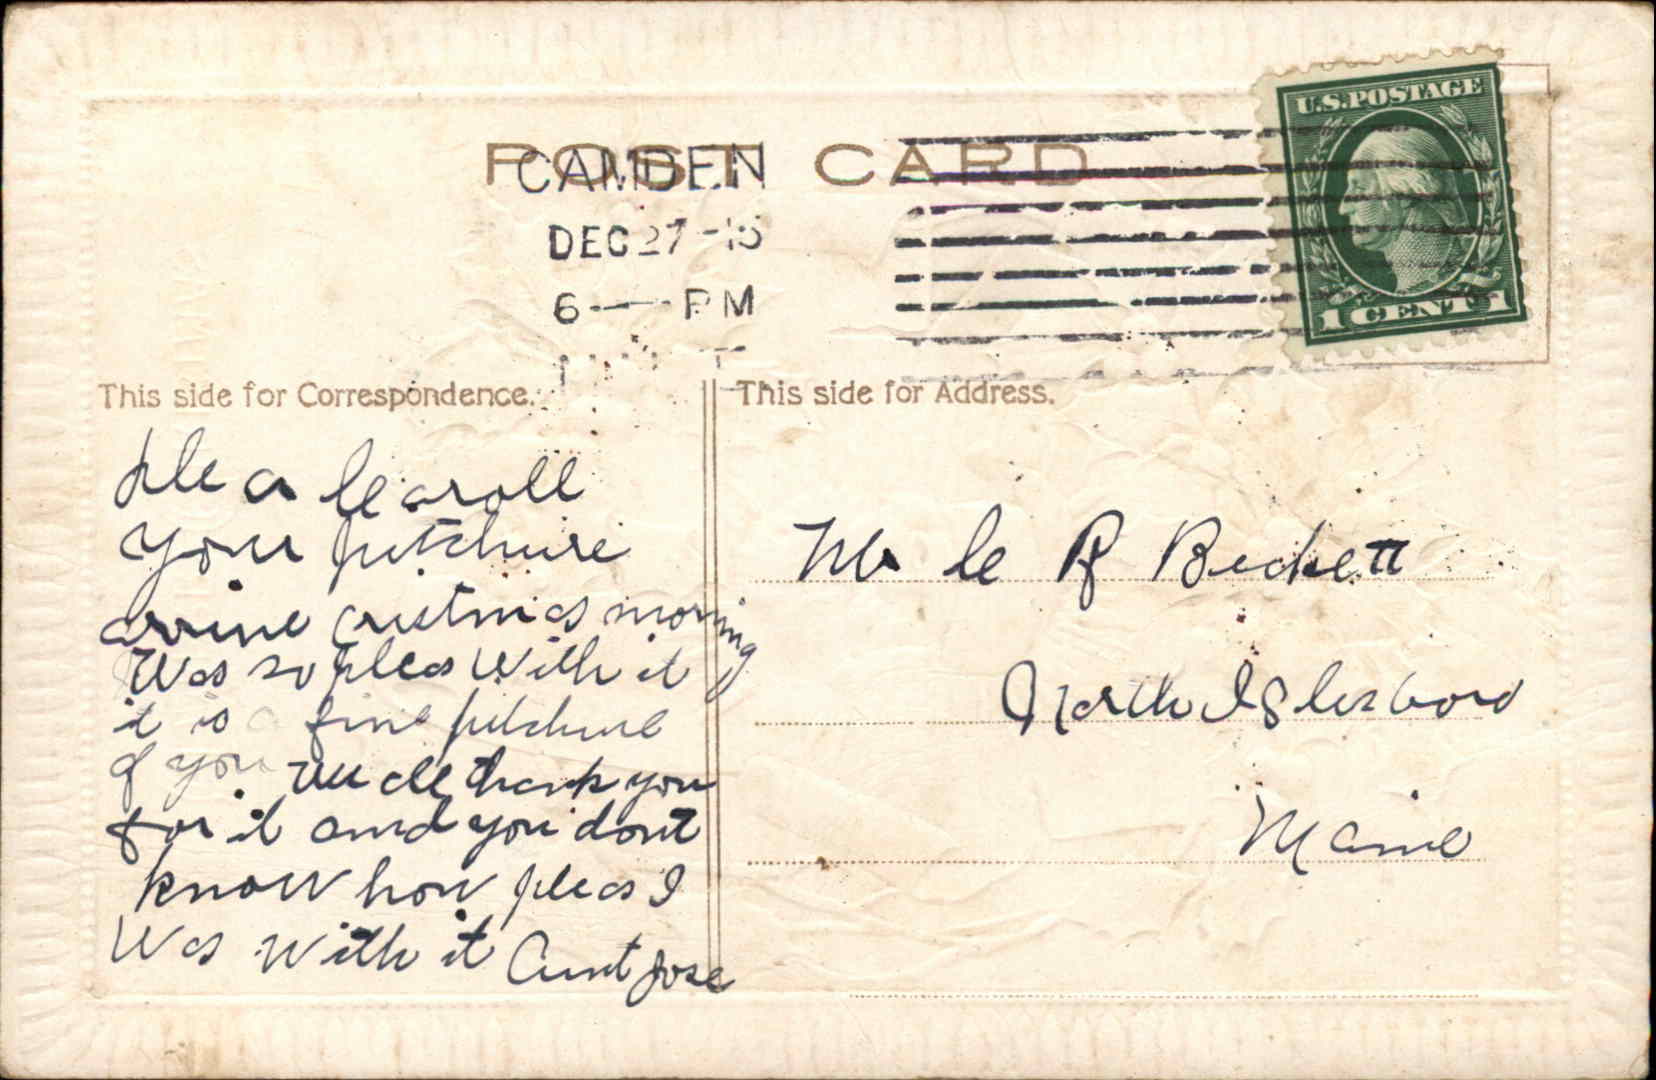 POST CARD
CAMDEN
DEC 27 -15
6 — PM
U.S. POSTAGE
1 CENT 1
This side for Correspondence.
This side for Address.
Dea Carroll
Your putchure
arrive cristmas morning
Was so pleas With it
it is a fine putchure
of you We all thank you
for it and you dont
know how pleas I
Was With it Aunt Jose
Mr C R Beckett
North Islesboro
Maine